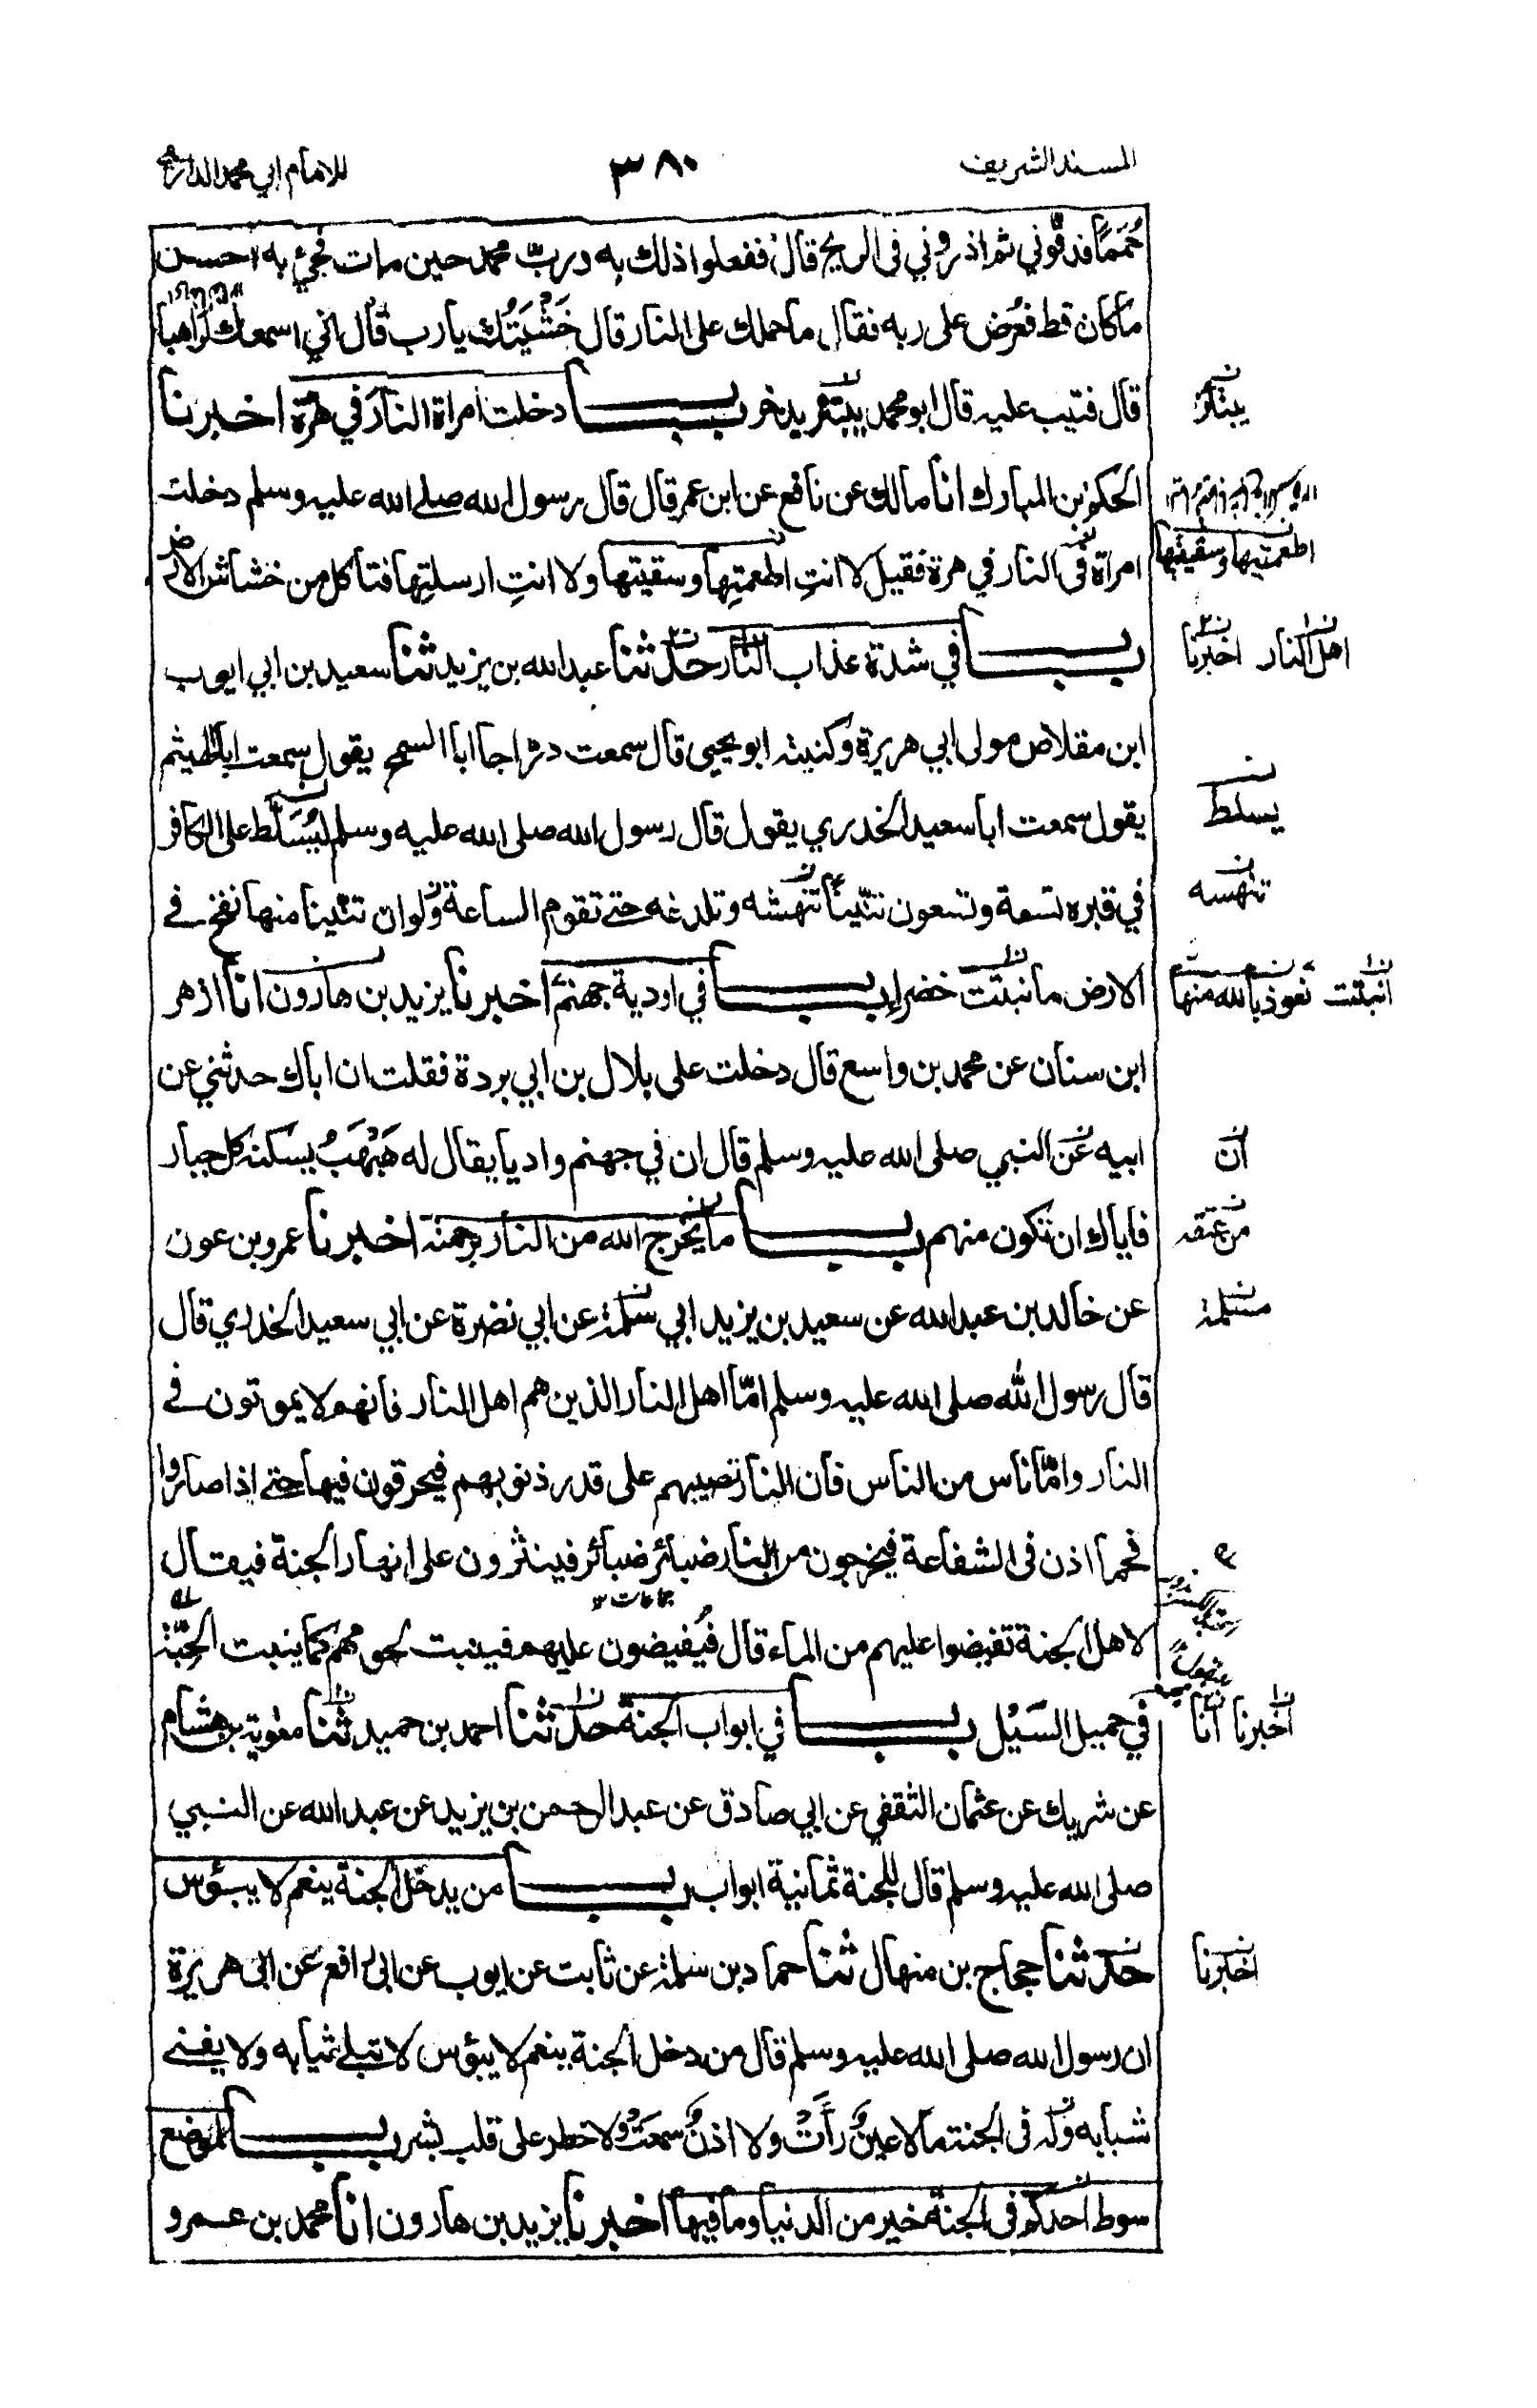 المسند الشريف ٣٨٠ للامام ابي محمد الدارمي
حُمَمًا فدقّوني ثم اذروني في الريح قال ففعلوا ذلك به وربّ محمد حين مات فجئ به احسن
ما كان قط فعُرض على ربه فقال ما حملك على النار قال خَشْيَتُك يا رب قال اني اسمعك لراهبا
قال فتيب عليه قال ابو محمد يبتئر يدخر بـــاب دخلت امراة النار في هرّة اخبرنا
يبتئر
الحكم بن المبارك انا مالك عن نافع عن ابن عمر قال قال رسول الله صلى الله عليه وسلم دخلت
امراة في النار في هرة فقيل لا انتِ اطعمتِها وسقيتها ولا انتِ ارسلتِها فتاكل من خشاش الارض
اطعمتيها وسقيتيها
بـــاب في شدة عذاب النار حدثنا عبد الله بن يزيد ثنا سعيد بن ابي ايوب
اهل النار اخبرنا
ابن مقلاص مولى ابي هريرة وكنيته ابو يحيى قال سمعت دراجا ابا السمح يقول سمعت ابا الهيثم
يقول سمعت ابا سعيد الخدري يقول قال رسول الله صلى الله عليه وسلم ليُسَلَّط على الكافر
يسلط
في قبره تسعة وتسعون تنّينًا تنهشه وتلدغه حتى تقوم الساعة ولو ان تنّينا منها نفخ في
تنهسه
الارض ما نبتت خضراء بـــاب في اودية جهنم اخبرنا يزيد بن هارون انا ازهر
انبتت نعوذ بالله منها
ابن سنان عن محمد بن واسع قال دخلت على بلال بن ابي بردة فقلت ان اباك حدثني عن
ابيه عن النبي صلى الله عليه وسلم قال ان في جهنم واديا يقال له هَبْهَبُ يسكنه كل جبار
ان
فاياك ان تكون منهم بـــاب ما يخرج الله من النار برحمته اخبرنا عمرو بن عون
من عتقه
عن خالد بن عبد الله عن سعيد بن يزيد ابي سلمة عن ابي نضرة عن ابي سعيد الخدري قال
مسلمة
قال رسول الله صلى الله عليه وسلم امّا اهل النار الذين هم اهل النار فانهم لا يموتون في
النار وامّا ناس من الناس فان النار تصيبهم على قدر ذنوبهم فيحرقون فيها حتى اذا صاروا
فحما اذن في الشفاعة فيخرجون من النار ضبائر ضبائر فينثرون على انهار الجنة فيقال
جماعات ١٢
لاهل الجنة تفيضوا عليهم من الماء قال فيُفيضون عليهم فينبت لحومهم كما ينبت الحِبّة
في حميل السَيْل بـــاب في ابواب الجنة حدثنا احمد بن حميد ثنا معوية بن هشام
اخبرنا انا
عن شريك عن عثمان الثقفي عن ابي صادق عن عبد الرحمن بن يزيد عن عبد الله عن النبي
صلى الله عليه وسلم قال للجنة ثمانية ابواب بـــاب من يدخل الجنة ينعم لا يبؤس
حدثنا حجاج بن منهال ثنا حماد بن سلمة عن ثابت عن ايوب عن ابي رافع عن ابي هريرة
اخبرنا
ان رسول الله صلى الله عليه وسلم قال من دخل الجنة ينعم لا يبؤس لا تبلى ثيابه ولا يفنى
شبابه وله في الجنة ما لا عينٌ رأَتْ ولا اذنٌ سمعَتْ ولا خطر على قلب بشر بـــاب لموضع
سوط احدكم في الجنة خير من الدنيا وما فيها اخبرنا يزيد بن هارون انا محمد بن عمرو